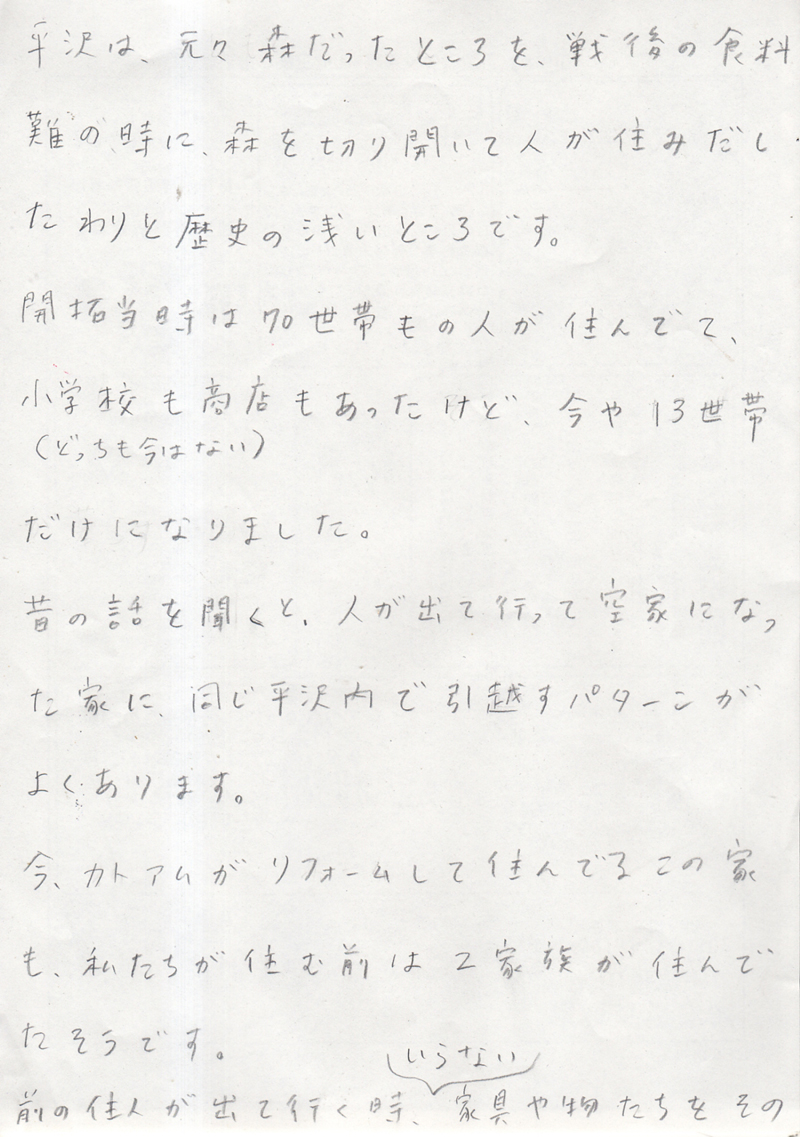 平沢は、元々森だったところを、戦後の食料
難の時に、森を切り開いて人が住みだし
たわりと歴史の浅いところです。
開拓当時は70世帯もの人が住んでて、
小学校も商店もあったけど、今や13世帯
(どっちも今はない)
だけになりました。
昔の話を聞くと、人が出て行って空家になっ
た家に、同じ平沢内で引越すパターンが
よくあります。
今、カトアムがリフォームして住んでるこの家
も、私たちが住む前は2家族が住んで
たそうです。
いらない
前の住人が出て行く時、家具や物たちをその